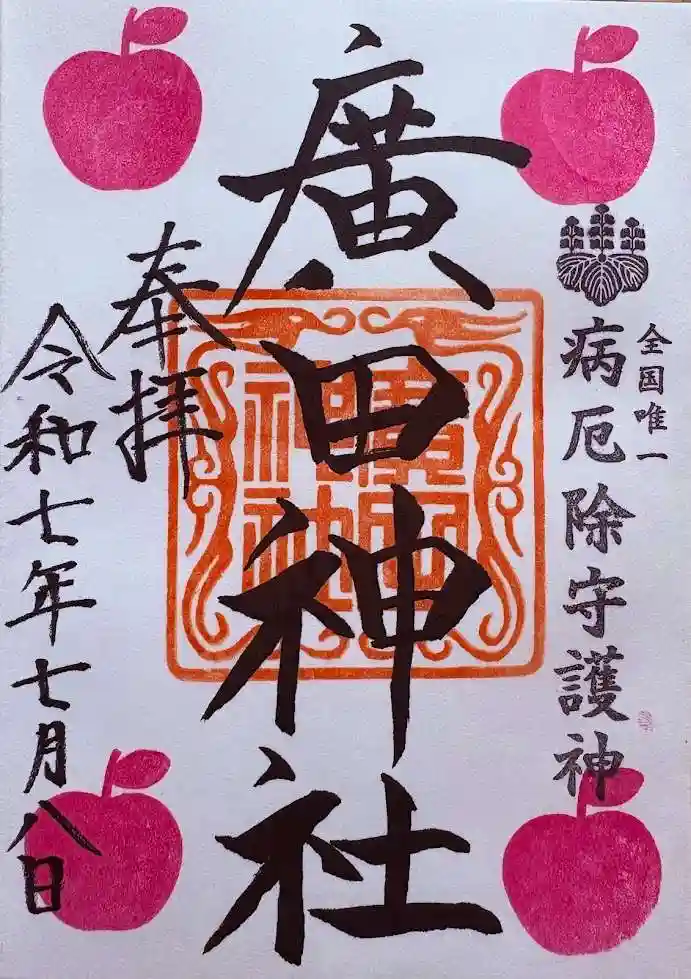 全国唯一
病厄除守護神
廣田神社
廣田
神社
奉拝
令和七年七月八日